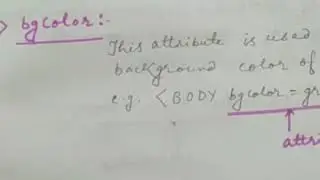 bgcolor:-
This attribute is used
background color of
e.g. <BODY bgcolor = gr
attri